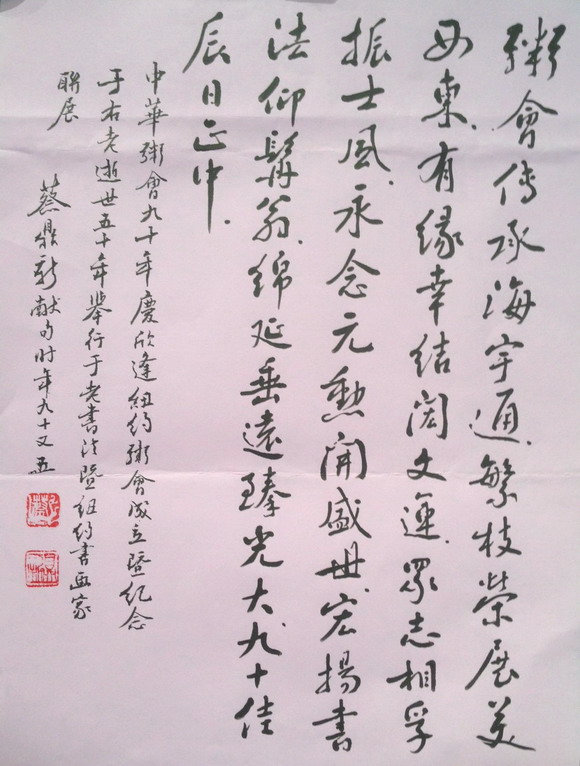 粥會传承海宇通.繁枝榮展美
西東.有緣幸結閎文運.眾志相孚
振士風.永念元勳開盛世.宏揚書
法仰髯翁.綿延垂遠臻光大.九十佳
辰日正中.
中華粥會九十年慶欣逢紐約粥會成立暨紀念
于右老逝世五十年舉行于老書法暨紐約書画家
聯展
蔡鼎新献句时年九十又五